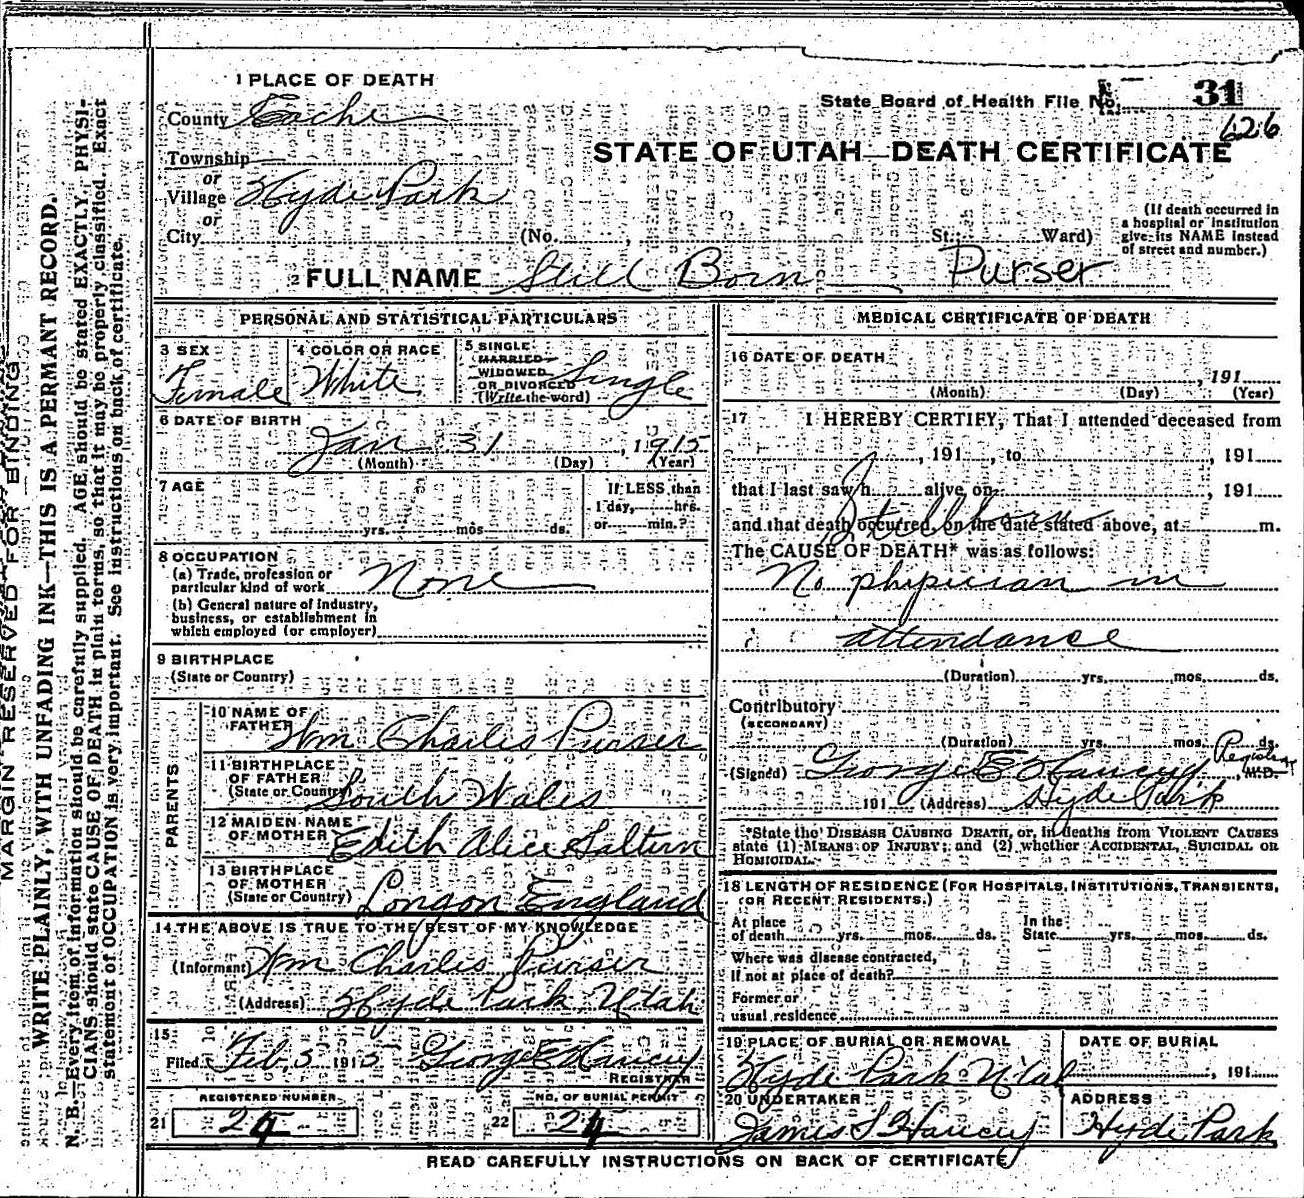 MARGIN RESERVED FOR BINDING
WRITE PLAINLY, WITH UNFADING INK—THIS IS A PERMANT RECORD.
N. B.—Every item of information should be carefully supplied. AGE should be stated EXACTLY. PHYSI-
CIANS should state CAUSE OF DEATH in plain terms, so that it may be properly classified. Exact
statement of OCCUPATION is very important. See instructions on back of certificate.
1 PLACE OF DEATH
County Cache
State Board of Health File No. 31
626
STATE OF UTAH—DEATH CERTIFICATE
Township
or
Village Hyde Park
or
City (No. , St. Ward)
(If death occurred in
a hospital or institution
give its NAME instead
of street and number.)
2 FULL NAME Still Born Purser
PERSONAL AND STATISTICAL PARTICULARS
3 SEX
Female
4 COLOR OR RACE
White
5 SINGLE
MARRIED
WIDOWED
OR DIVORCED
(Write the word)
Single
6 DATE OF BIRTH
Jan 31, 1915
(Month) (Day) (Year)
7 AGE
yrs. mos ds.
If LESS than
1 day, hrs.
or min.?
8 OCCUPATION
(a) Trade, profession or
particular kind of work None
(b) General nature of industry,
business, or establishment in
which employed (or employer)
9 BIRTHPLACE
(State or Country)
PARENTS
10 NAME OF
FATHER Wm Charles Purser
11 BIRTHPLACE
OF FATHER
(State or Country) South Wales
12 MAIDEN NAME
OF MOTHER Edith Alice Saltern
13 BIRTHPLACE
OF MOTHER
(State or Country) London England
14 THE ABOVE IS TRUE TO THE BEST OF MY KNOWLEDGE
(Informant) Wm Charles Purser
(Address) Hyde Park Utah
15
Filed Feb. 3 1915 George E Hancey
REGISTRAR
REGISTERED NUMBER
21
NO. OF BURIAL PERMIT
22
MEDICAL CERTIFICATE OF DEATH
16 DATE OF DEATH
, 191
(Month) (Day) (Year)
17 I HEREBY CERTIFY, That I attended deceased from
, 191 , to , 191
that I last saw h alive on , 191
Stillborn
and that death occurred, on the date stated above, at m.
The CAUSE OF DEATH* was as follows:
No physician in
attendance
(Duration) yrs. mos. ds.
Contributory
(SECONDARY)
(Duration) yrs. mos. ds.
(Signed) George E Hancey Registrar, M.D.
191 (Address) Hyde Park
*State the DISEASE CAUSING DEATH, or, in deaths from VIOLENT CAUSES
state (1) MEANS OF INJURY; and (2) whether ACCIDENTAL, SUICIDAL OR
HOMICIDAL.
18 LENGTH OF RESIDENCE (FOR HOSPITALS, INSTITUTIONS, TRANSIENTS,
OR RECENT RESIDENTS.)
At place
of death yrs. mos. ds.
In the
State yrs. mos. ds.
Where was disease contracted,
if not at place of death?
Former or
usual residence
19 PLACE OF BURIAL OR REMOVAL
Hyde Park Utah
DATE OF BURIAL
, 191
20 UNDERTAKER
James S Hancey
ADDRESS
Hyde Park
READ CAREFULLY INSTRUCTIONS ON BACK OF CERTIFICATE